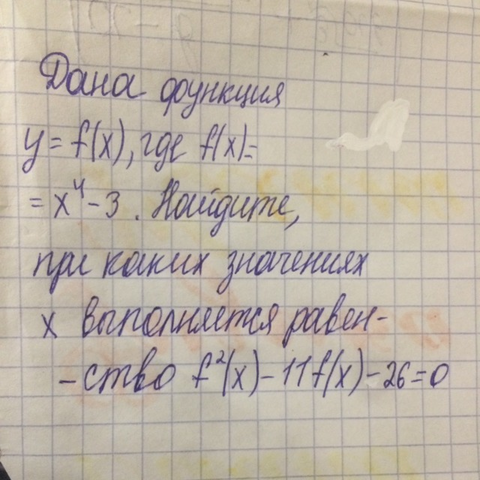 Дана функция
y = f(x), где f(x)=
= x⁴ - 3. Найдите,
при каких значениях
x выполняется равен-
- ство f²(x) - 11f(x) - 26 = 0